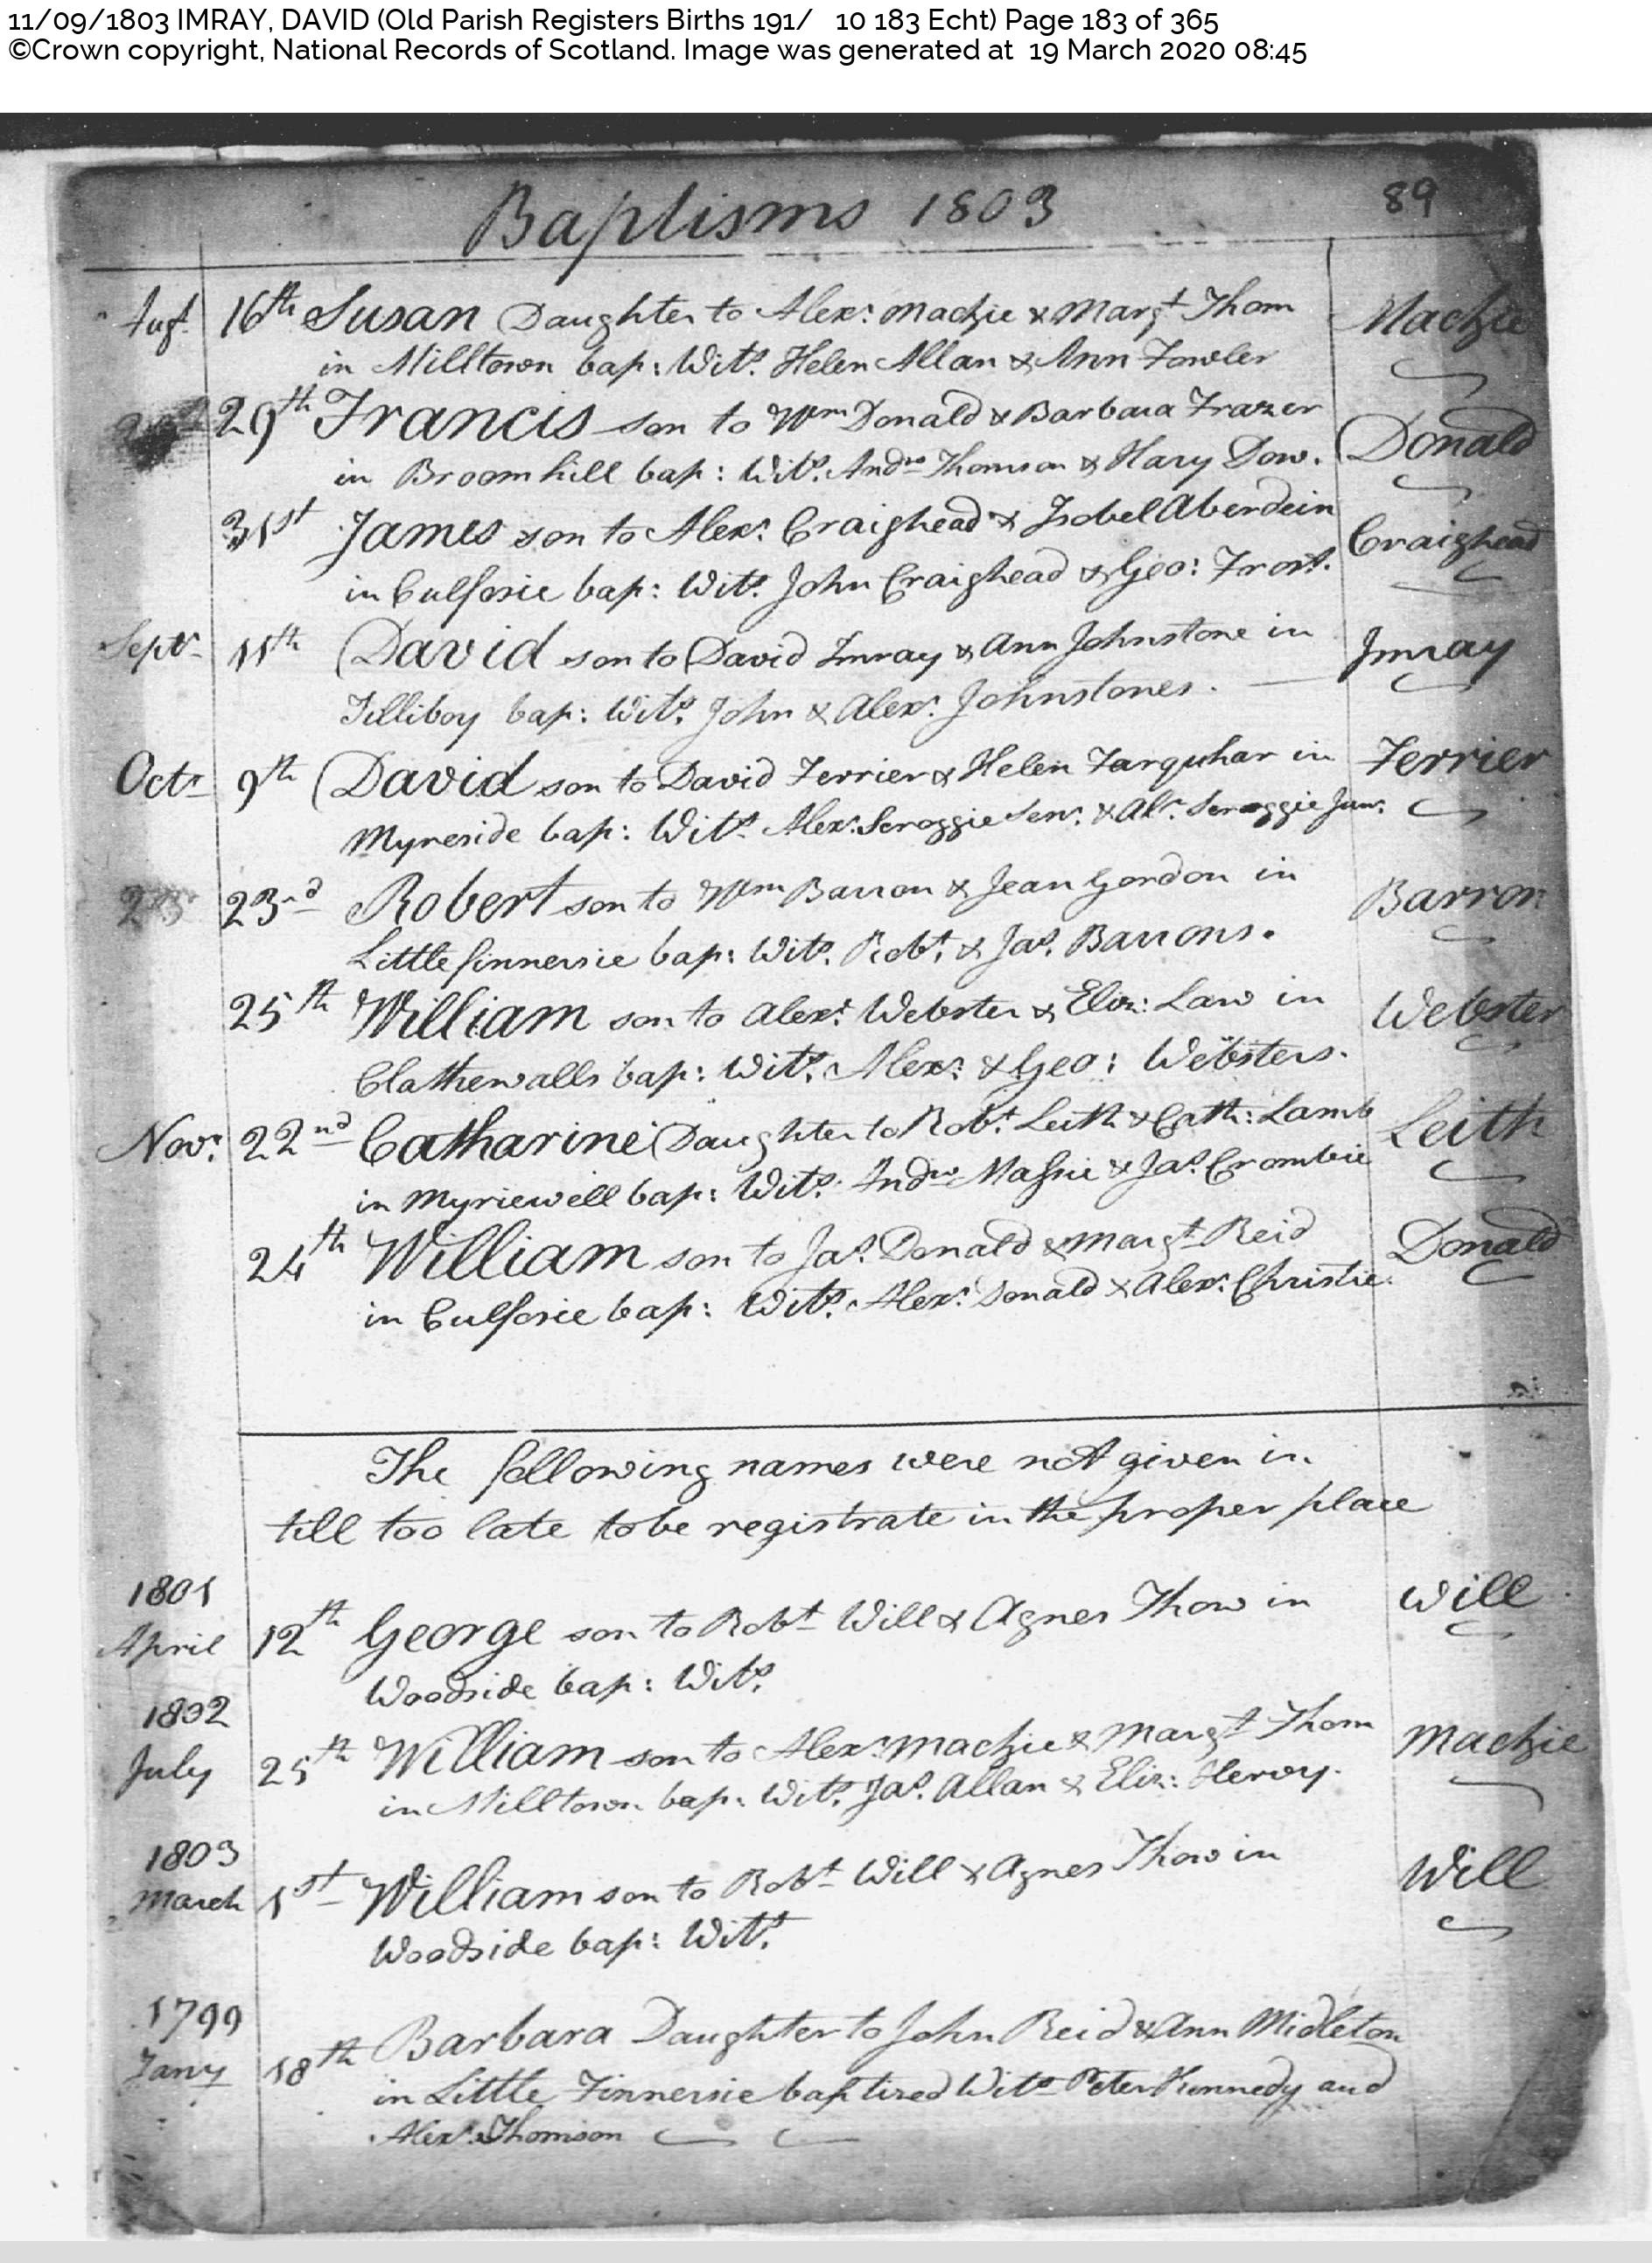 11/09/1803 IMRAY, DAVID (Old Parish Registers Births 191/ 10 183 Echt) Page 183 of 365
©Crown copyright, National Records of Scotland. Image was generated at 19 March 2020 08:45
Baptisms 1803 89
Augt. 16th Susan Daughter to Alexr. Mackie & Margt Thom Mackie
in Milltown bap: Wits. Helen Allan & Ann Fowler
29th Francis son to Wm Donald & Barbara Frazer Donald
in Broomhill bap: Wits. Andw Thomson & Mary Dow.
31st James son to Alexr. Craighead & Isobel Aberdein Craighead
in Culfosie bap: Wits. John Craighead & Geo: Frost.
Septr 11th David son to David Imray & Ann Johnstone in Imray
Tilliboy bap: Wits. John & Alexr. Johnstones.
Octr 9th David son to David Ferrier & Helen Farquhar in Ferrier
Myreside bap: Wits. Alexr. Scroggie Senr. & Alr. Scroggie Junr.
23 23rd Robert son to Wm Barron & Jean Gordon in Barron
Little finnersie bap: Wits. Robt. & Jas. Barrons.
25th William son to Alexr. Webster & Eliz: Law in Webster
Clathenwalls bap: Wits. Alexr. & Geo: Websters.
Novr. 22nd Catharine Daughter to Robt. Leith & Cath: Lamb Leith
in Myriewell bap: Wits. Andw Massie & Jas. Crombie
24th William son to Jas. Donald & Margt Reid Donald
in Culfosie bap: Wits. Alexr. Donald & Alexr. Christie.
The following names were not given in
till too late to be registrate in the proper place
1801
April 12th George son to Robt Will & Agnes Thow in Will
Woodside bap: Wits.
1802
July 25th William son to Alexr. Mackie & Margt Thom Mackie
in Milltown bap: Wits. Jas. Allan & Eliz: Hervy.
1803
March 1st William son to Robt Will & Agnes Thow in Will
Woodside bap: Wits.
1799
Jany 18th Barbara Daughter to John Reid & Ann Midleton
in Little Finnersie baptized Wits Peter Kennedy and
Alexr. Thomson